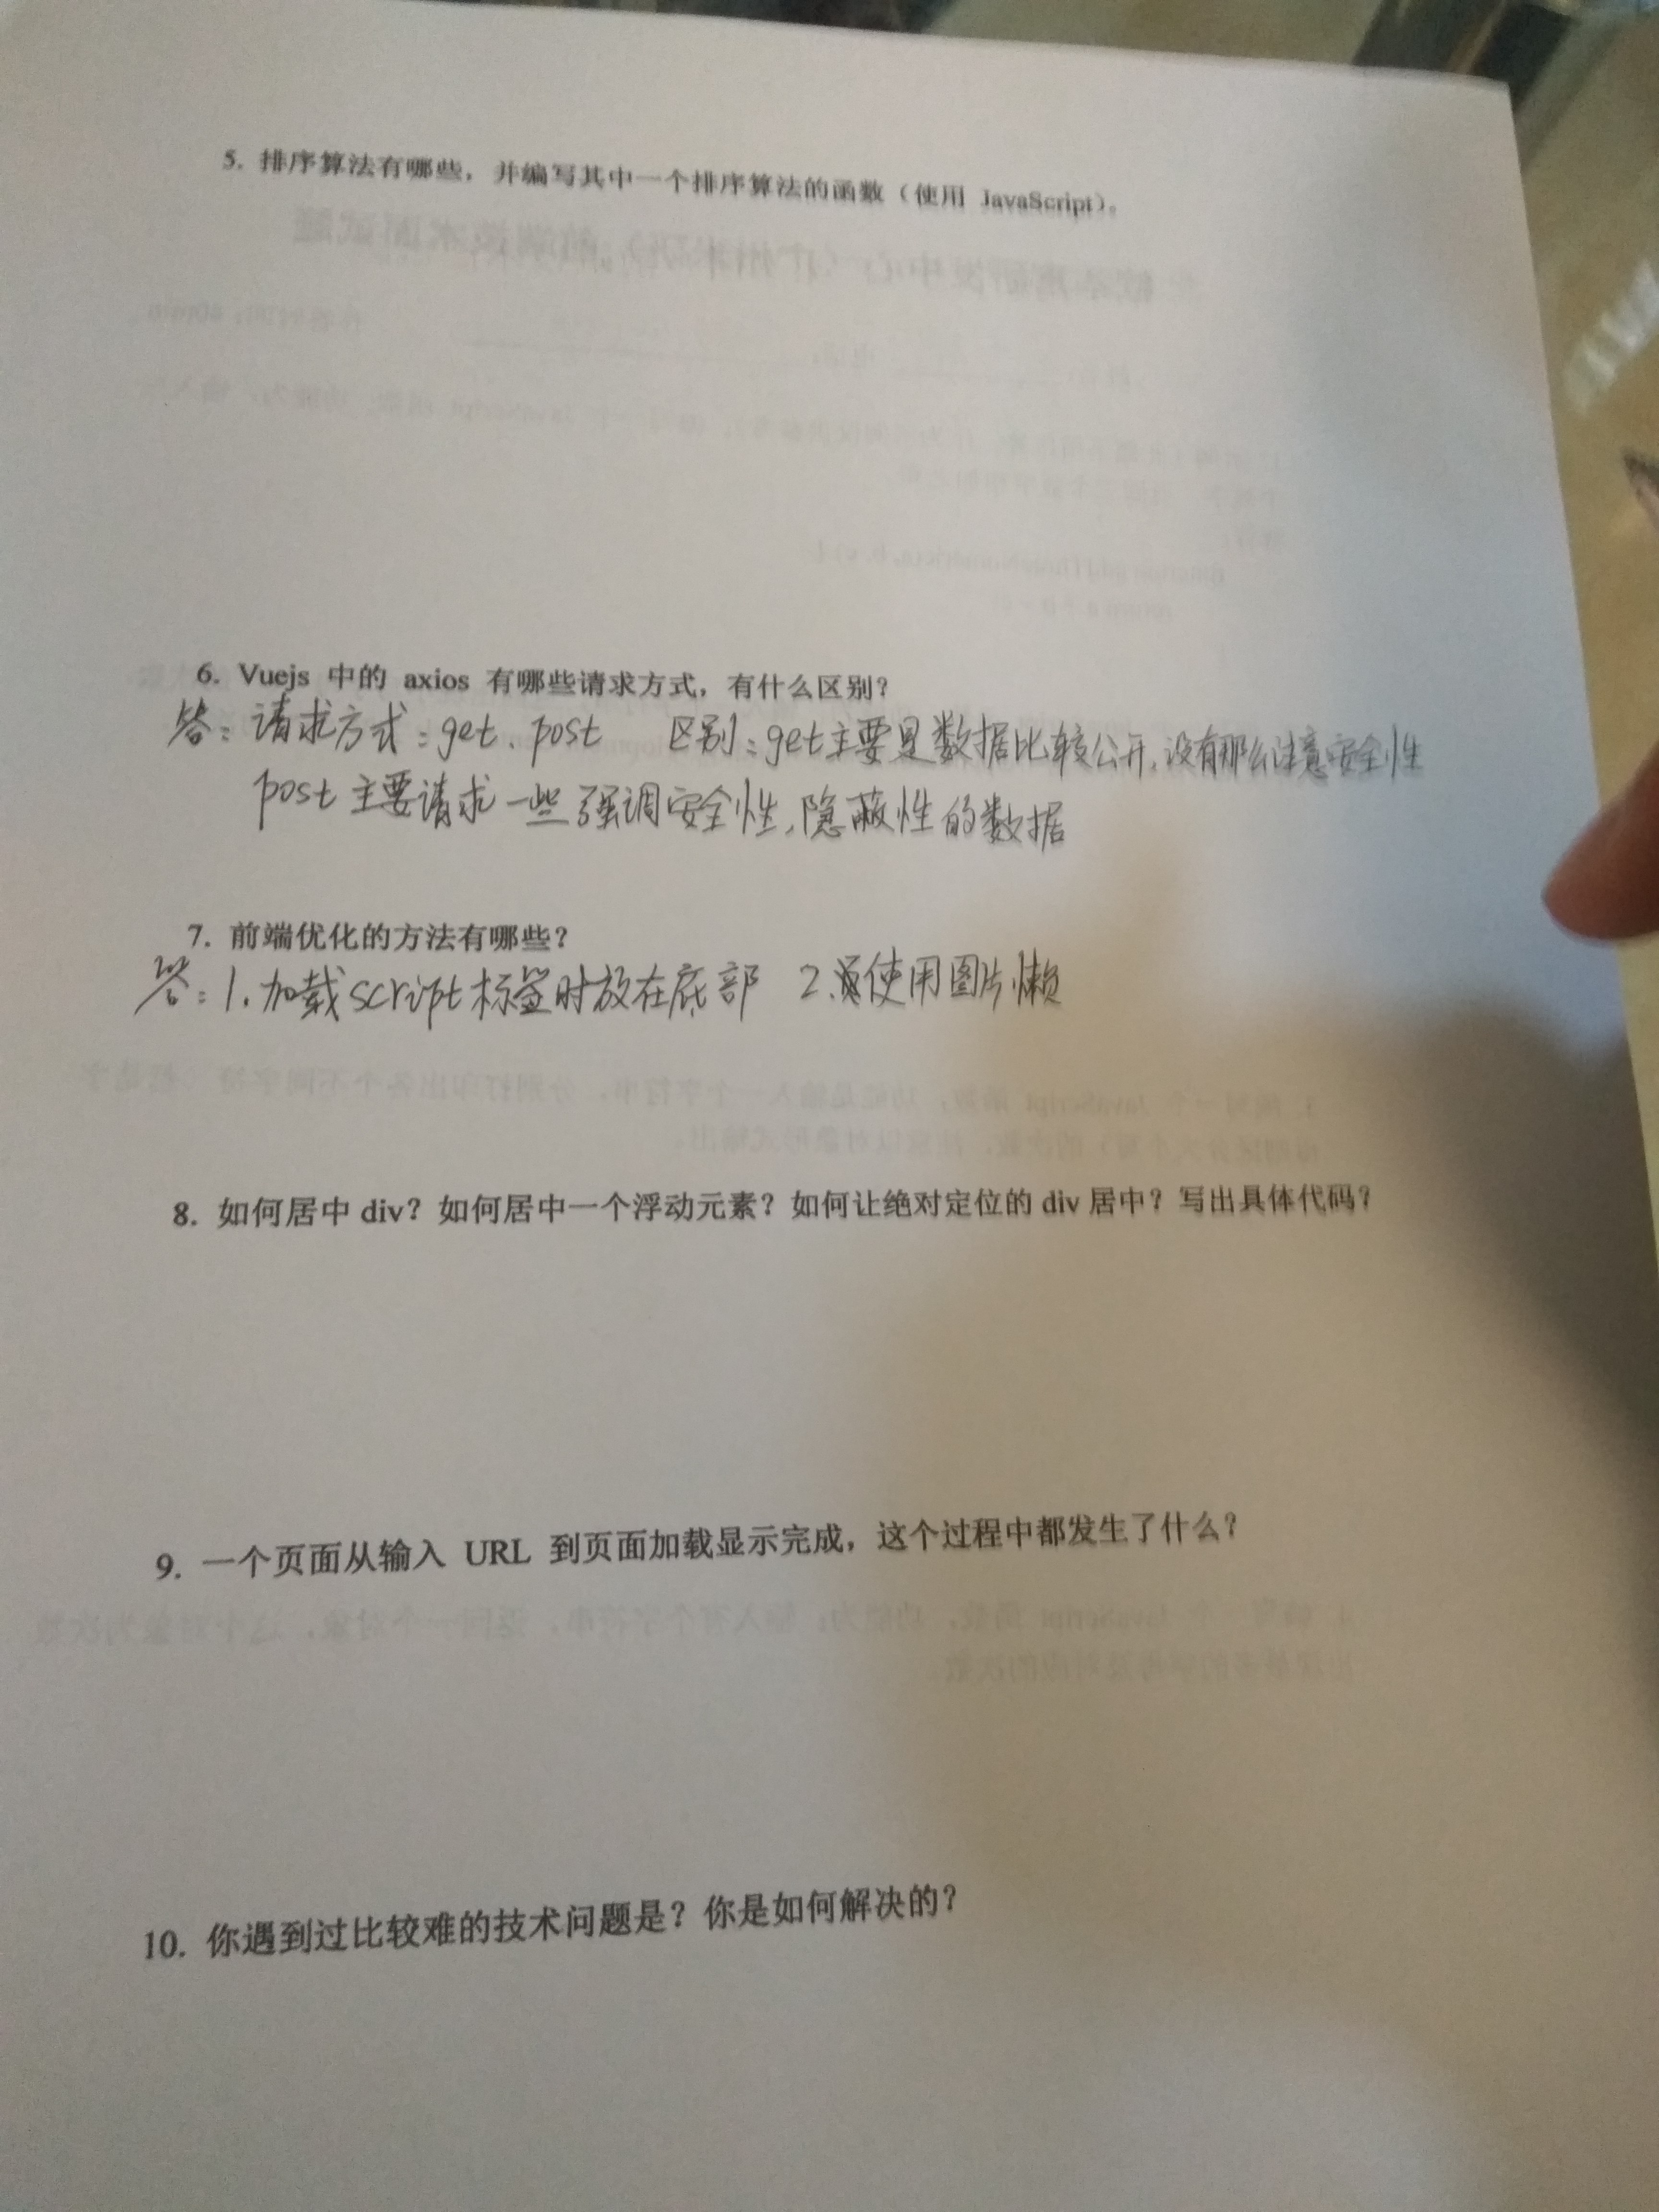 5. 排序算法有哪些，并编写其中一个排序算法的函数（使用 JavaScript）。
6. Vuejs 中的 axios 有哪些请求方式，有什么区别？
答：请求方式：get、post 区别：get主要是数据比较公开，没有那么注意安全性
post 主要请求一些强调安全性，隐蔽性的数据
7. 前端优化的方法有哪些？
答：1.加载script标签时放在底部 2.使用图片懒
8. 如何居中 div？如何居中一个浮动元素？如何让绝对定位的 div 居中？写出具体代码？
9. 一个页面从输入 URL 到页面加载显示完成，这个过程中都发生了什么？
10. 你遇到过比较难的技术问题是？你是如何解决的？